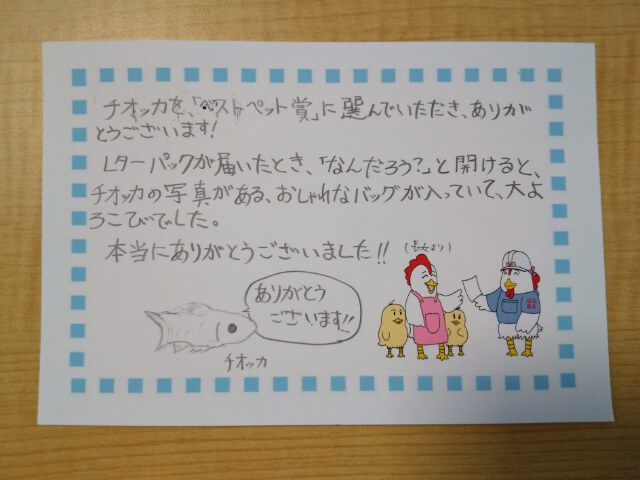 チオッカを、「ベストペット賞」に選んでいただき、ありが
とうございます!
Lターパックが届いたとき、「なんだろう?」と開けると、
チオッカの写真がある、おしゃれなバッグが入っていて、大よ
ろこびでした。
本当にありがとうございました!!
(長女より)
ありがとう
ございます!!
チオッカ